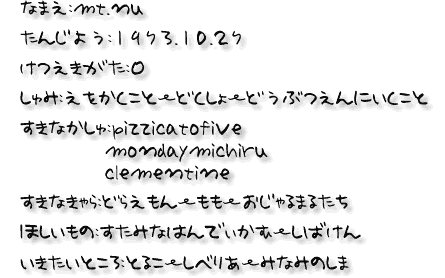 なまえ:mt.nu
たんじょう:1973.10.27
けつえきがた:O
しゅみ:えをかくこと~どくしょ~どうぶつえんにいくこと
すきなかしゅ:pizzicatofive
mondaymichiru
clementine
すきなきゃら:どらえもん~もも~おじゃるまるたち
ほしいもの:すたみなはんでぃかすぅ~しばけん
いきたいところ:とるこ~しべりあ~みなみのしま